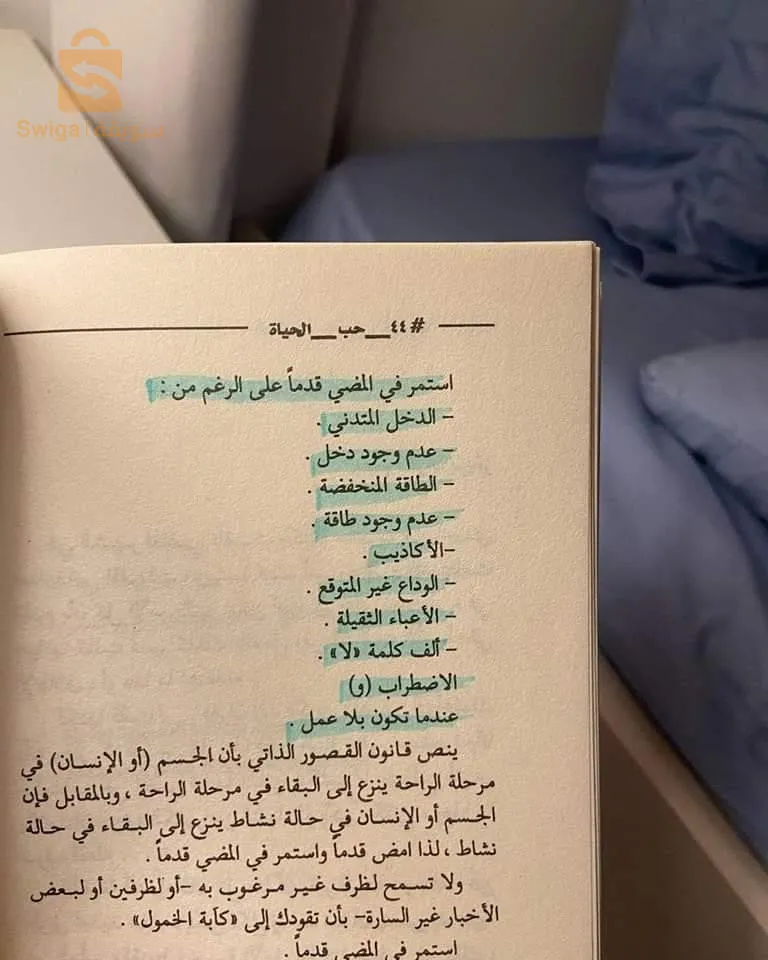 Swiga
#٤٤__حب__الحياة
استمر في المضي قدماً على الرغم من :
– الدخل المتدني .
– عدم وجود دخل .
– الطاقة المنخفضة .
– عدم وجود طاقة .
–الأكاذيب .
– الوداع غير المتوقع .
– الأعباء الثقيلة .
– ألف كلمة «لا» .
الاضطراب (و)
عندما تكون بلا عمل .
ينص قانون القصور الذاتي بأن الجسم (أو الإنسان) في
مرحلة الراحة ينزع إلى البقاء في مرحلة الراحة ، وبالمقابل فإن
الجسم أو الإنسان في حالة نشاط ينزع إلى البقاء في حالة
نشاط ، لذا امض قدماً واستمر في المضي قدماً .
ولا تسمح لظرف غير مرغوب به –أو لظرفين أو لبعض
الأخبار غير السارة– بأن تقودك إلى «كآبة الخمول» .
استمر في المضي قدماً .